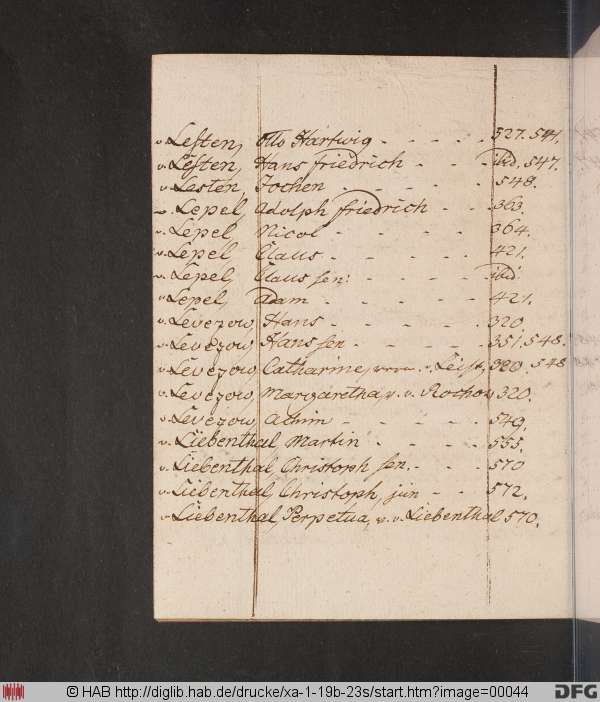 v. Lesten, Otto Hartwig - - - - 527. 547.
v. Lesten, Hans friedrich - - - ibid. 547.
v. Lesten, Jochen - - - - - 548.
v. Lepel, Adolph friedrich - - 363.
v. Lepel, Nicol - - - - - 364.
v. Lepel Claus - - - - - 421.
v. Lepel, Claus sen: - - - - ibid.
v. Lepel, Adam - - - - - 421.
v. Levezow, Hans - - - - - 320.
v. Levezow, Hans sen - - - - 351. 548.
v. Levezow, Catharine, v. Leist, 320. 548
v. Levezow, Margaretha, v. v. Rochow 320.
v. Levezow, Achim - - - - 549.
v. Liebenthal Martin - - - - 555.
v. Liebenthal, Christoph sen. - - - 570
v. Liebenthal, Christoph, jun - - 572.
v. Liebenthal, Perpetua, v. v. Liebenthal 570.
© HAB http://diglib.hab.de/drucke/xa-1-19b-23s/start.htm?image=00044 DFG